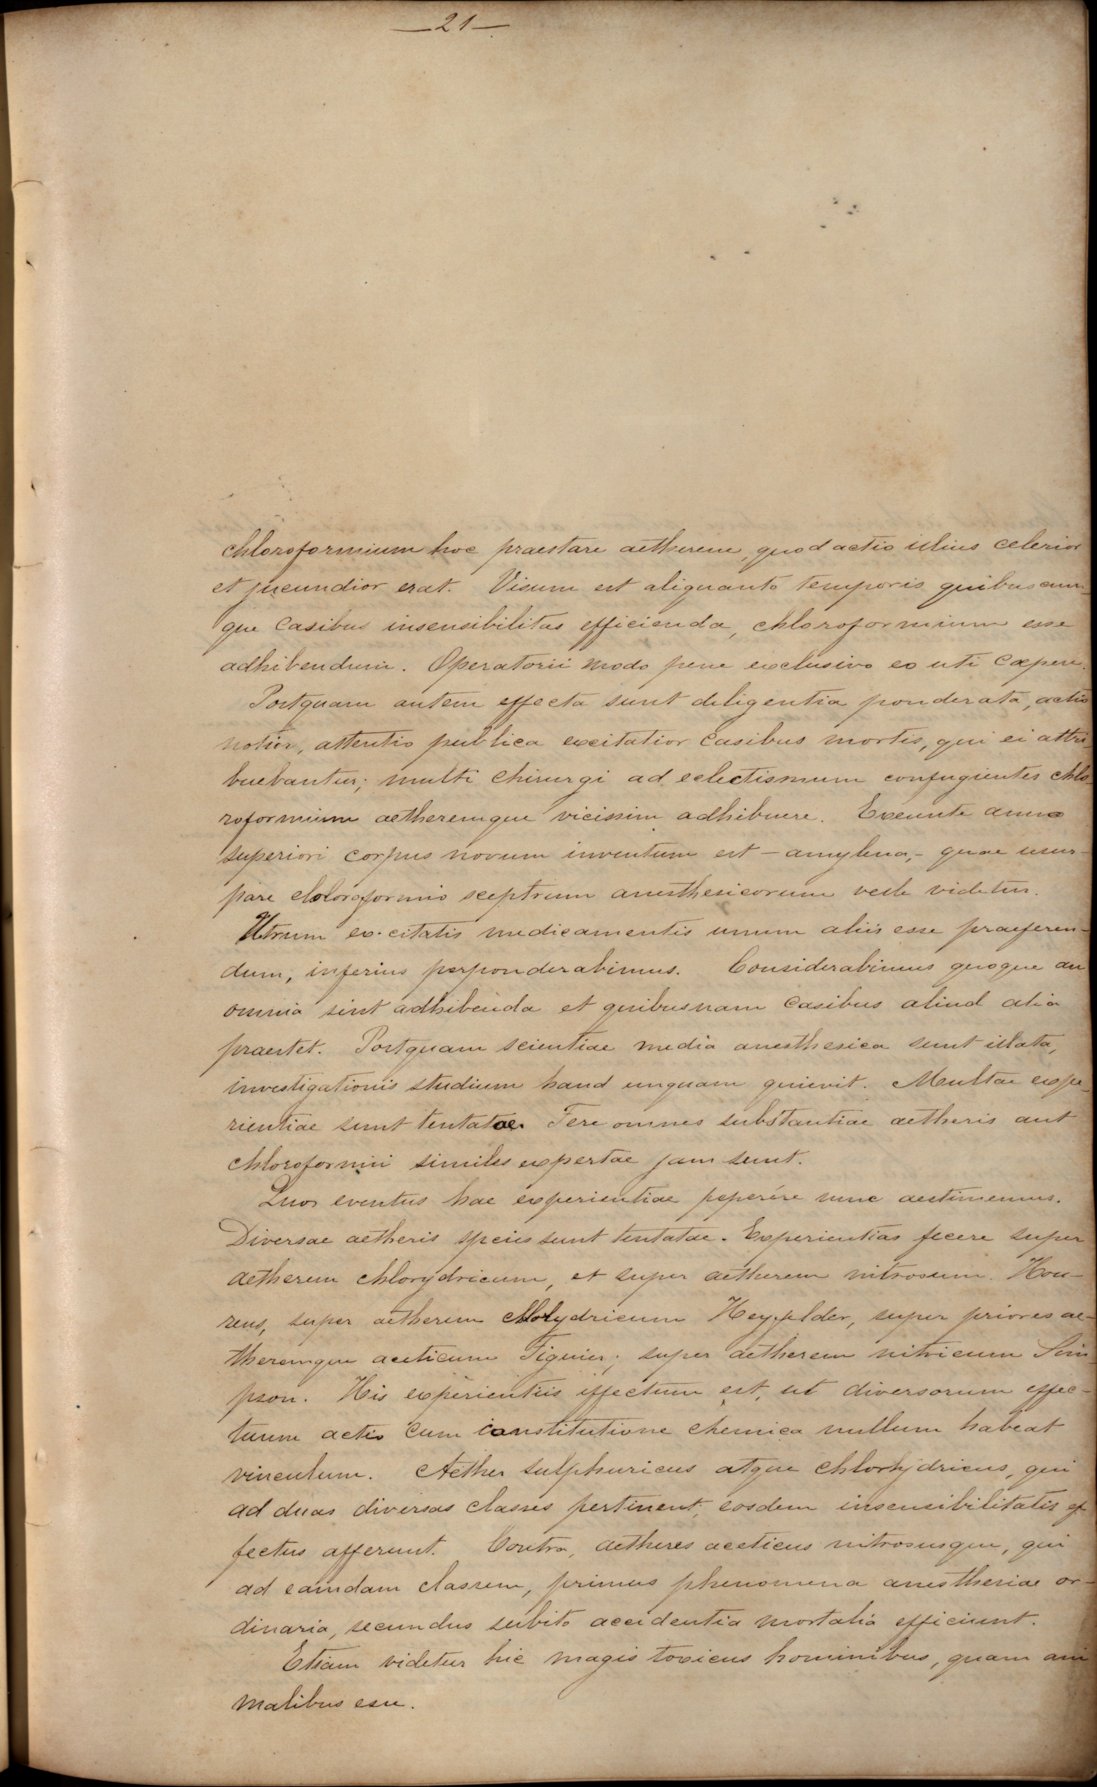 — 21 —
chloroformium hoc praestare aetherem, quod actio illius celerior
et jucundior erat. Visum est aliquanto temporis quibuscum-
que casibus insensibilitas efficienda, chloroformium esse
adhibendum. Operatorii modo pene exclusivo eo uti coepere.
Postquam autem effecta sunt deligentia ponderata, actio
notior, attentio publica excitatior casibus mortis, qui ei attri
buebantur; multi chirurgi ad eclectismum confugientes chlo-
roformium aetheremque vicissim adhibuere. Exeunte anno
superiori corpus novum inventum est – amylena, – quae usur-
pare chloroformio sceptrum anesthesicorum velle videtur.
Utrum ex citatis medicamentis unum aliis esse praeferen-
dum, inferius perponderabimus. Considerabimus quoque an
omnia sint adhibenda et quibusnam casibus aliud alia
praestet. Postquam scientiae media anesthesica sunt illata,
investigationis studium haud unquam quievit. Multae expe-
rientiae sunt tentatae. Fere omnes substantiae aetheris aut
chloroformii similes expertae jam sunt.
Quos eventus hae experientiae peperére nunc aestimemus.
Diversae aetheris species sunt tentatae. Experientias fecere super
aetherem chlorydricum, et super aetherem nitrosum
super aetherem chlorydricum Heyfelder, super priores ae-
theremque aceticum Figuier; super aetherem nitricum Sim
pson. His experientiis effectum est, ut diversorum effec-
tuum actio cum constitutione chemica nullum habeat
vinculum. Aether sulphuricus atque chlorhydricus, qui
ad duas diversas classes pertinent, eosdem insensibilitatis ef
fectus afferunt. Contra, aetheres aceticus nitrosusque, qui
ad eamdam classem, primus phenomena anestheriae or-
dinaria, secundus subito accidentia mortalia efficiunt.
Etiam videtur hic magis toxicus hominibus, quam ani
malibus esse.